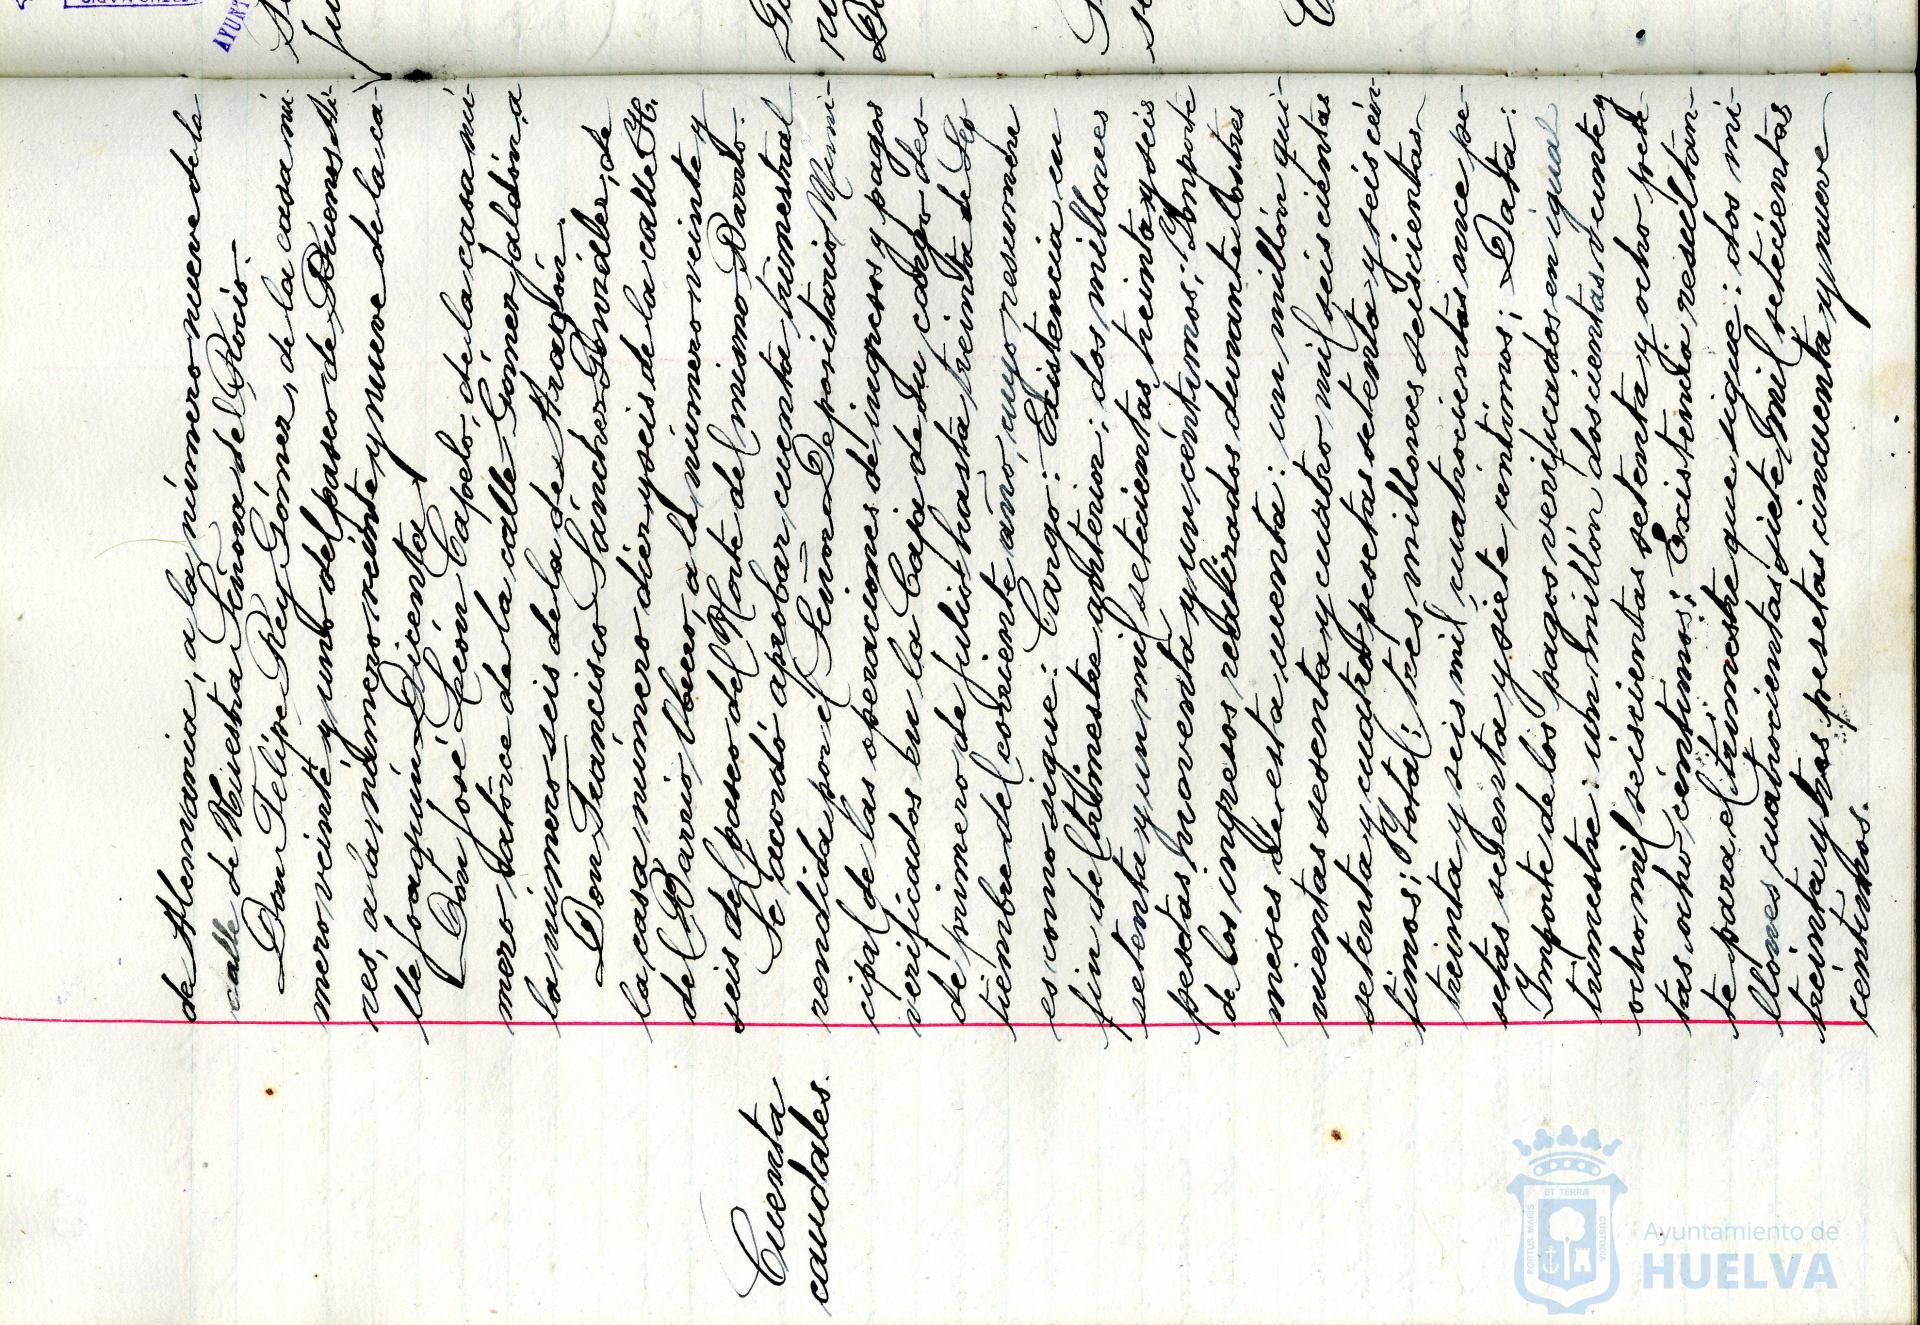 de Alemania, a la número nueve de la
calle de Nuestra Señora del Rocío.
Don Felipe Rey Gómez, de la casa nú-
mero veinte y uno del paseo de Buenos Ai-
res, a la número veinte y nueve de la ca-
lle Joaquín Dicenta.
Don José León Capelo, de la casa nú-
mero catorce de la calle Gómez Jaldón, a
la número seis de la de Aragón.
Don Francisco Sánchez González, de
la casa número diez y seis de la calle H.
del Barrio Obrero, a la número veinte y
seis del paseo del Norte del mismo Barrio.
Cuenta
caudales.
Se acordó aprobar cuenta trimestral
rendida por el Señor Depositario Muni-
cipal de las operaciones de ingresos y pagos
verificados en la Caja de su cargo des-
de primero de Julio hasta treinta de Sep-
tiembre del corriente año, cuyo resumen
es como sigue: Cargo: Existencia en
fin del trimestre anterior; dos millones
setenta y un mil setecientas treinta y seis
pesetas, noventa y un céntimos; Importe
de los ingresos realizados durante los tres
meses de esta cuenta: un millón qui-
nientas sesenta y cuatro mil seiscientas
setenta y cuatro pesetas setenta y seis cén-
timos; Total: tres millones seiscientas
treinta y seis mil cuatrocientas once pe-
setas sesenta y siete céntimos; Data:
Importe de los pagos verificados en igual
trimestre: un millón doscientas veinte y
ocho mil seiscientas setenta y ocho pese-
tas, ocho céntimos; Existencia resultan-
te para el trimestre que sigue: dos mi-
llones cuatrocientas siete mil setecientas
treinta y tres pesetas cincuenta y nueve
céntimos.
ET TERRÆ
PORTUS MARIS
CUSTODIA
Ayuntamiento de
HUELVA